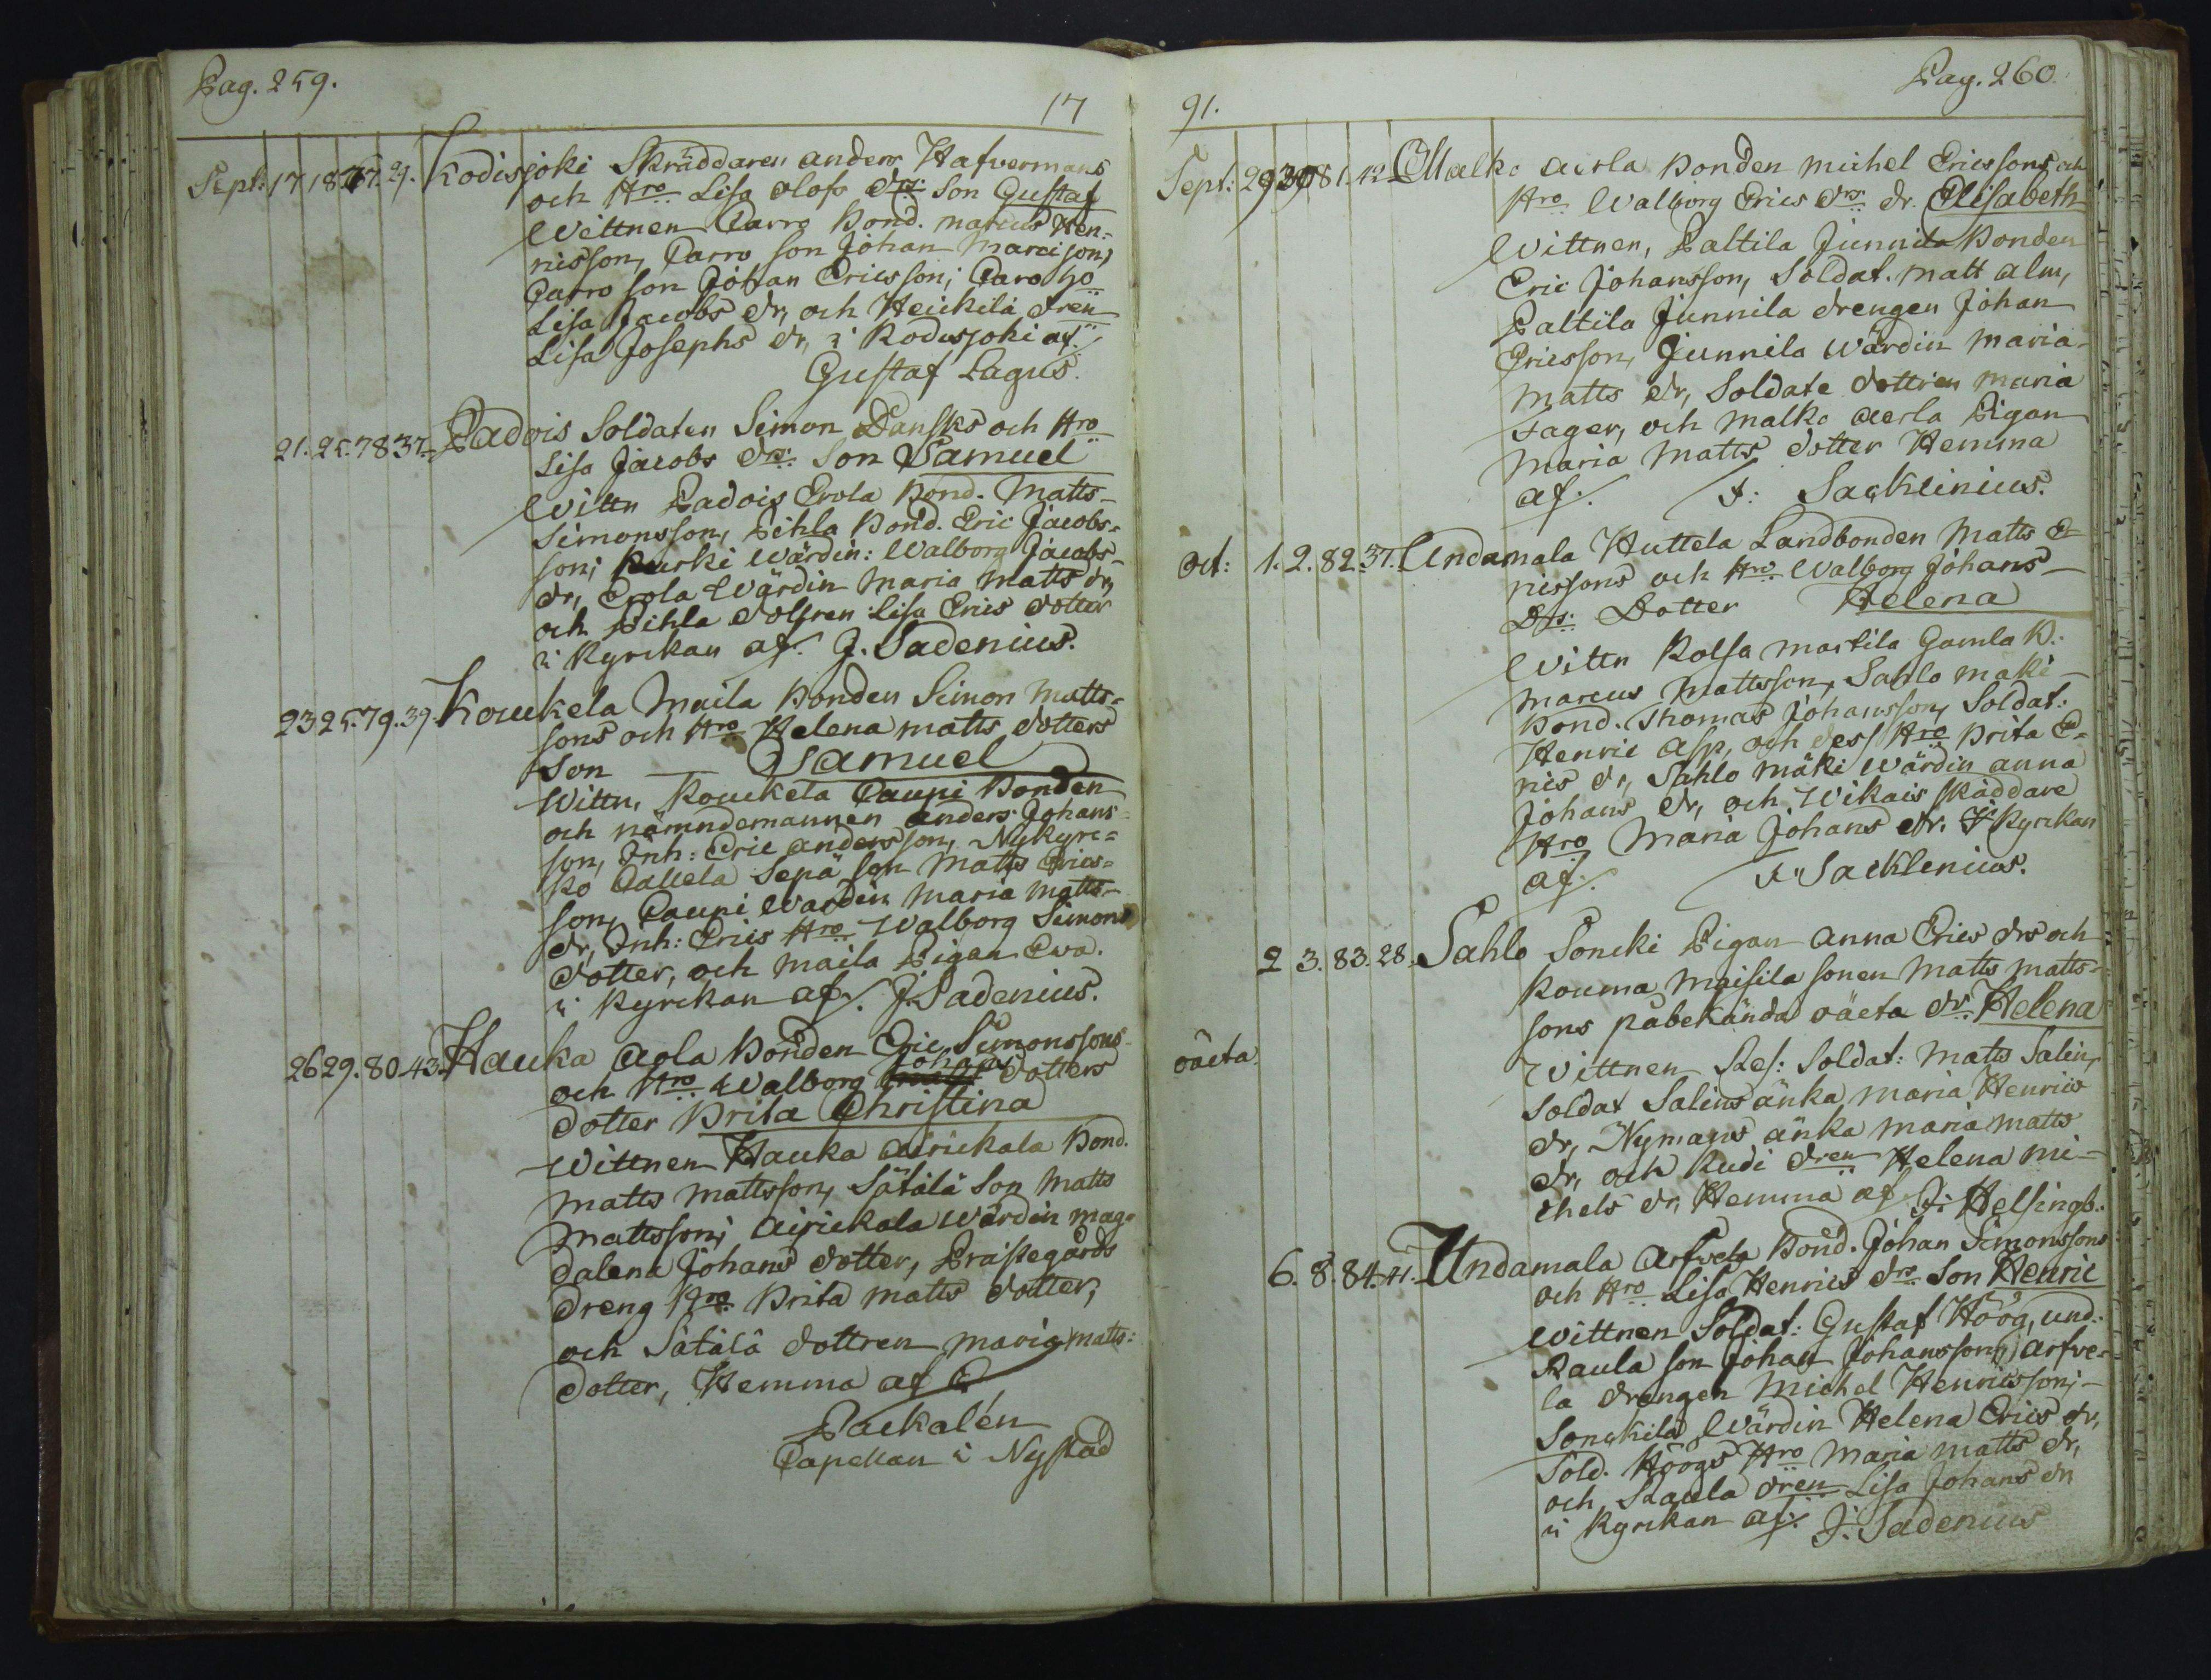 Pag. 259.
17
Sept: 17 18 77. 29. Kodisjoki Skräddaren anders Hafvermans
och Hro Lisa olofs drs: Son Gustaf
Wittnen Carro Bond. marcus Hen-
ricsson, Carro son Johan Marcison,
Carro son Johan Ericsson; Caro ho
Lisa Jacobs dr, och Heickilä dren
Lisa Josephs dr, i Kodisjoki af./.
Gustaf Lagus.
21. 25. 78 37. Padois Soldaten Simon Dansks och Hro
Lisa Jacobs drs: Son Samuel
Wittn Padois Erola Bond. Matts
Simonsson, Pihla Bond. Eric Jacobs-
son; Kurki Wärdin: Walborg Jacobs-
dr, Erola Wärdin Maria Matts dr,
och Pihla dottren Lisa Erics dotter
i Kyrckan af. J. Sadenius.
23 25. 79. 39. Kouckela Maila Bonden Simon Matts-
sons och Hro Helena matts dotters
Son Samuel
Wittn. Kouckela Caupi Bonden
och nämndemannen anders Johans-
son, Inh: Eric andersson, Nykyrc-
ko Callela Sepä son Matts Erics-
son, Caupi Wärdin Maria Matts-
dr, Inh: Erics Hro Walborg Simons
dotter, och Maila Pigan Eva.
i Kyrckan af./. J. Sadenius.
26 29. 80. 43. Hauka aola Bonden Eric Simonssons
och Hro Walborg Johans dotters
dotter Brita Christina
Wittnen Hauka airickala Bond.
Matts Mattsson, Sätälä Son Matts
Mattsson; airickala Wärdin mag-
dalena Johans dotter, Prästegårds
dreng Hro Brita Matts dotter,
och Sätälä dottren maria matts:
dotter, Hemma af E
Packalén
Capellan i Nystad
91.
Pag. 260.
Sept: 29 30 81. 42 Malko aerla Bonden Michel Ericssons och
Hro Walborg Erics drs dr. Elisabeth
Wittnen, Paltila Junnila Bonden
Eric Johansson, Soldat. Matt alm,
Paltila Junnila drengen Johan
Ericsson, Junnila Wärdin Maria
Matts dr, Soldate dottren maria
Fager, och Malko aerla Pigan
Maria Matts dotter Hemma
af./. F: Sacklinius.
Oct: 1. 2. 82. 37. Undamala Huttela Landbonden Matts E-
ricssons och Hro Walborg Johans
Drs: Dotter Helena
Wittn Kolsa Martila Gamla B.
Marcus Mattsson, Sahlo Mäki
Bond. Thomas Johansson, Soldat:
Henric Asp, och dess Hro Brita E-
rics dr, Sahlo Mäki Wärdin anna
Johans dr, och Wikais skäddare
Hro Maria Johans dr. I Kyrckan
af./. F. Sacklenius.
2 3. 83. 28. Sahlo Soncki Pigan Anna Erics drs och
Kouma Maisila sonen Matts Matts-
sons påbekända oäcta dr. Helena
oäcta.
Wittnen Res: Soldat: Matts Salin,
Soldat Salins änka Maria Henrics
dr, Nymans änka Maria Matts
dr, och Rudi dren Helena Mi-
chels dr, Hemma af J: Helsingb:
6. 8. 84. 41. Undamala Arfvela Bond. Johan Simonssons
och Hro Lisa Henrics drs Son Henric
Wittnen Soldat: Gustaf Höög, und:
Raula son Johan Johansson; Arfve-
la drengen Michel Henricsson;
Sonckila Wärdin Helena Erics dr,
Sold. Höögs Hro Maria Matts dr,
och Raula dren Lisa Johans dr
i Kyrckan af./. J. Sadenius